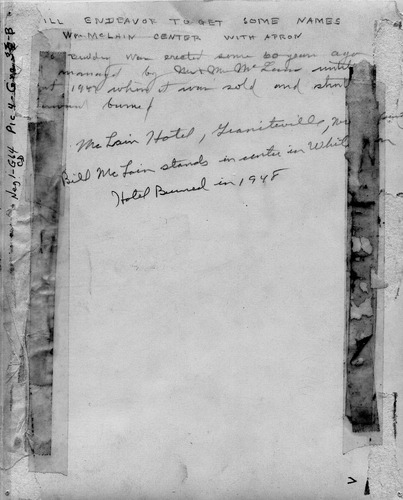 ILL ENDEAVOR TO GET SOME NAMES
WM MCLAIN CENTER WITH APRON
was erected some 60 years ago
managed by Mr & Mrs McLain until
1948 when it was sold and
burned
McLain Hotel, Graniteville,
Bill McLain stands in center in Whit
Hotel Burned in 1948
Neg 1-664 Pic 4-